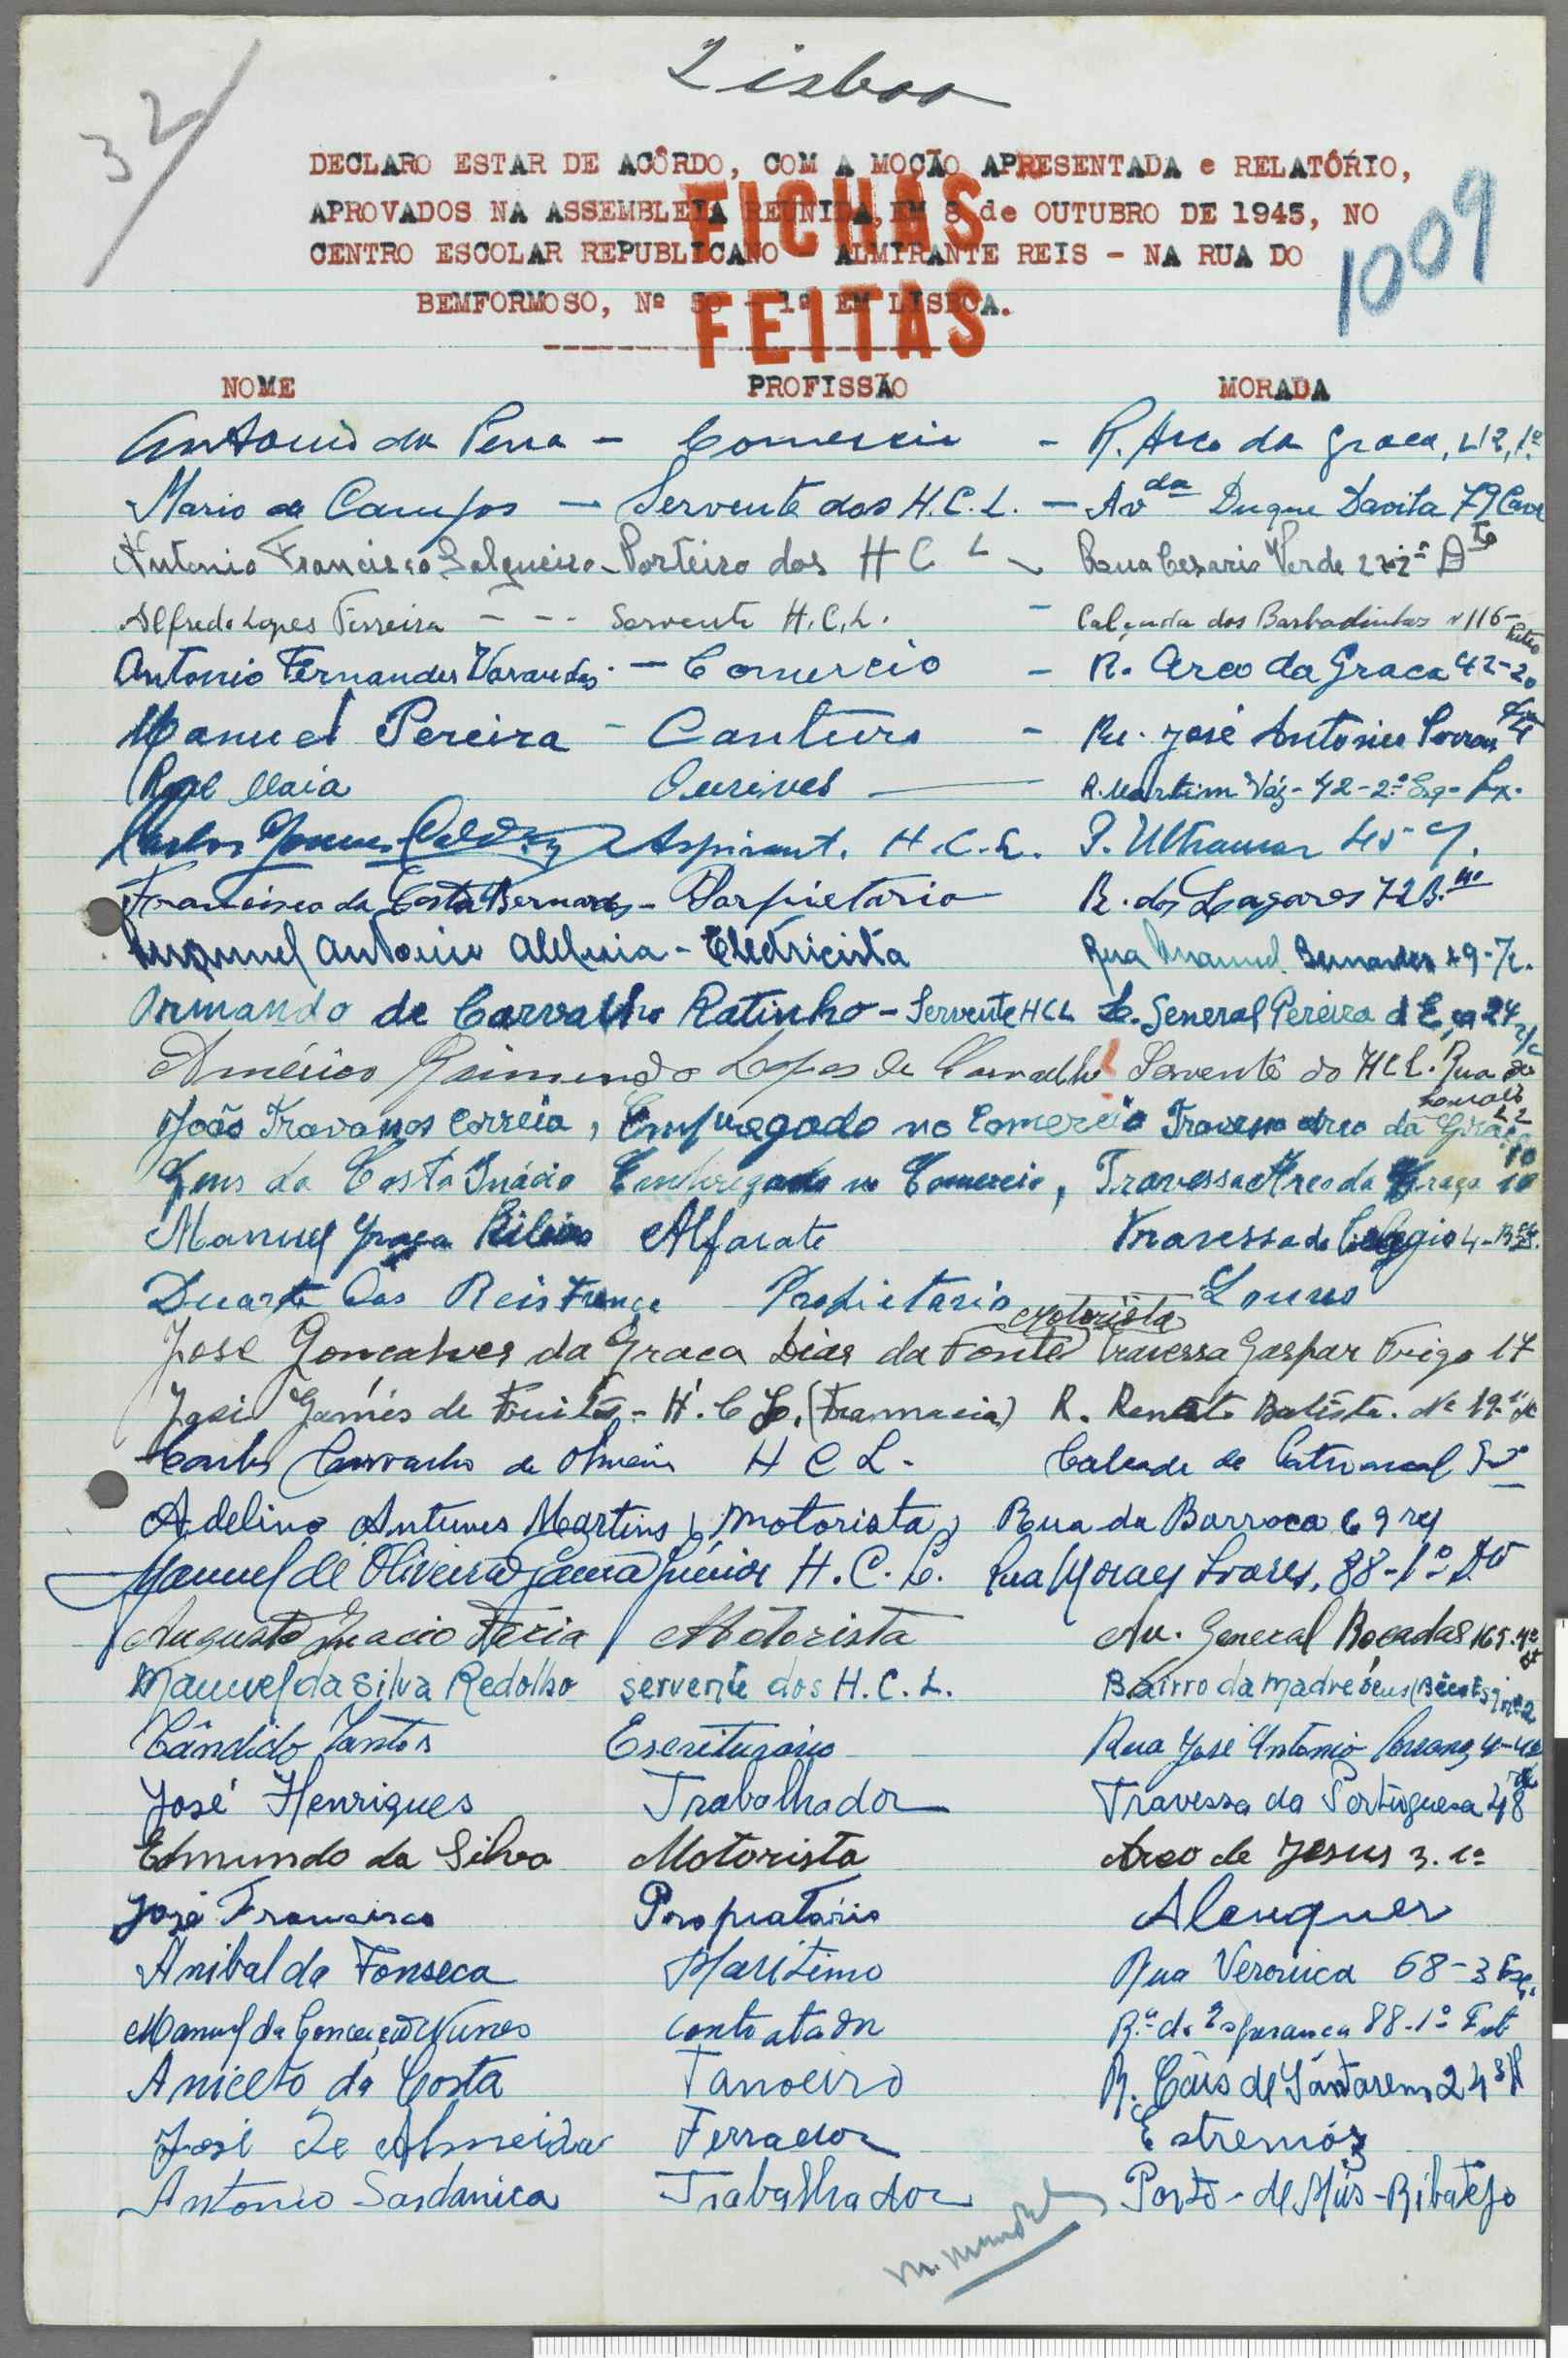 Lisboa
32
DECLARO ESTAR DE ACÔRDO, COM A MOÇÃO APRESENTADA e RELATÓRIO,
APROVADOS NA ASSEMBLEIA REUNIDA, EM 8 de OUTUBRO DE 1945, NO
CENTRO ESCOLAR REPUBLICANO ALMIRANTE REIS - NA RUA DO
BEMFORMOSO, Nº 50 - 1º EM LISBOA.
FICHAS
FEITAS
1009
NOME PROFISSÃO MORADA
Antonio da Pena - Comercio - R. Arco da Graca, 42, 1.º
Mario de Campos - Servente dos H.C.L. - Avda Duque Davila 79 Cave
Antonio Francisco Salgueiro - Porteiro dos H C L - Rua Cesario Verde Dto
Alfredo Lopes Ferreira - - - Servente H.C.L. - Calçada dos Barbadinhos nº 116 -
Antonio Fernandes Varandas - Comercio - R. Arco da Graca 42-2º
Manuel Pereira - Canteiro - Ru. José Antonio
Maia Ourives R. Martim Vaz - 42 - 2.º Esq - Lx.
Carlos Gomes Aspirant. H.C.L. P. Ultramar 45
Francisco da Costa Bernardes - Porpietario R. dos Lagares 72
Manuel Antonio Alleluia - Eletricista Rua Manuel Bernardes
Armando de Carvalho Ratinho - Servente HCL General Pereira d Eça 24 r/c
Américo Raimundo Lopes de Carvalho Servente do HCL. Rua
João Travanos Correia, Empregado no Comercio Travessa Arco da Graça
da Costa Inácio Empregado no Comercio, Travessa Arco da Graça 10
Manuel Graça Ribeiro Alfaiate Travessa do Colegio 4 -
Duarte dos Reis França Propietario Louro
Motorista
Jose Goncalves da Graca Dias da Fonte Travessa Gaspar Trigo 17
José Gomes de Freitas - H.C.L. (Framacia) R. Renato Batista. Nº 19
Carlos Carvalho de Oliveira H C L. Calcada de
Adelino Antunes Martins, Motorista, Rua da Barroca 69
Manuel de Oliveira Gama Júnior H.C.L. Rua Moraes Soares, 88-1º Dto
Augusto Inacio Faria Motorista Av. General Roçadas 165-4º
Manuel da Silva Redolho servente dos H.C.L. Bairro da Madre Deus
Cândido Santos Escriturário Rua José Antonio
José Henriques Trabalhador Travessa da Portuguesa 48
Edmundo da Silva Motorista Arco de Jesus 3. 1º
José Francisco Propriatário Alenquer
Anibal da Fonseca Maritimo Rua Veronica 68-3 Esq.
Manuel da Conceição Nunes contratador R.ª da Esperança 88-1º
Aniceto da Costa Tanoeiro R. Cais de Santarem 24
José de Almeida Ferrador Estremóz
Antonio Sardanica Trabalhador Porto - de Mós - Ribatejo